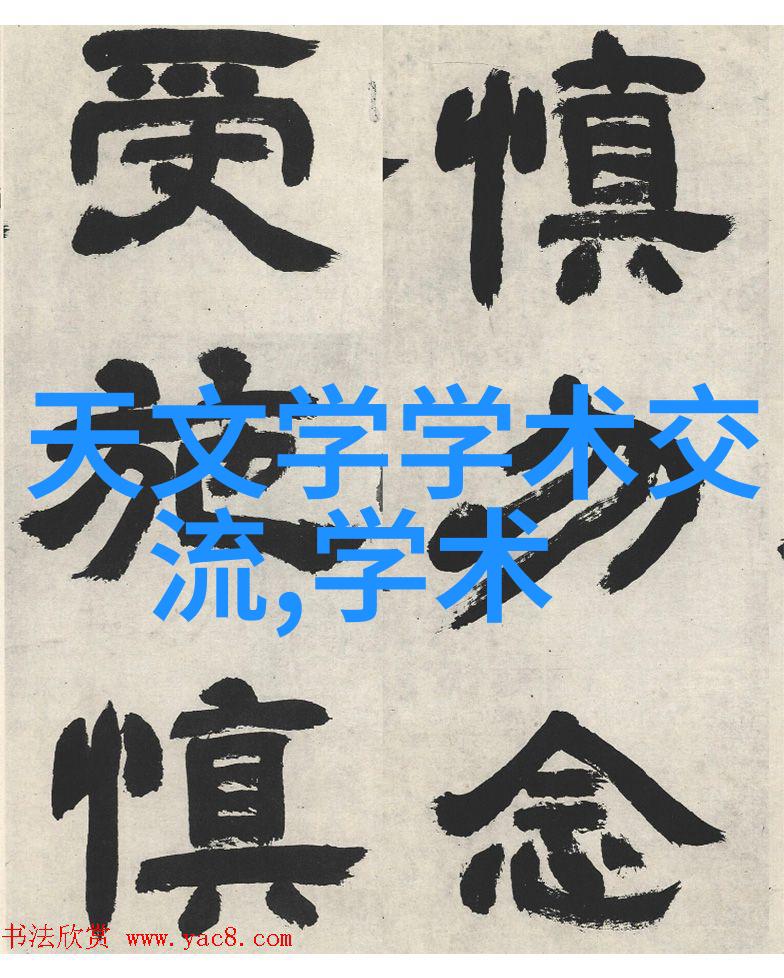 慎勿念
受施慎
天文学学术交
流,学术
书法欣赏 www.yac8.com